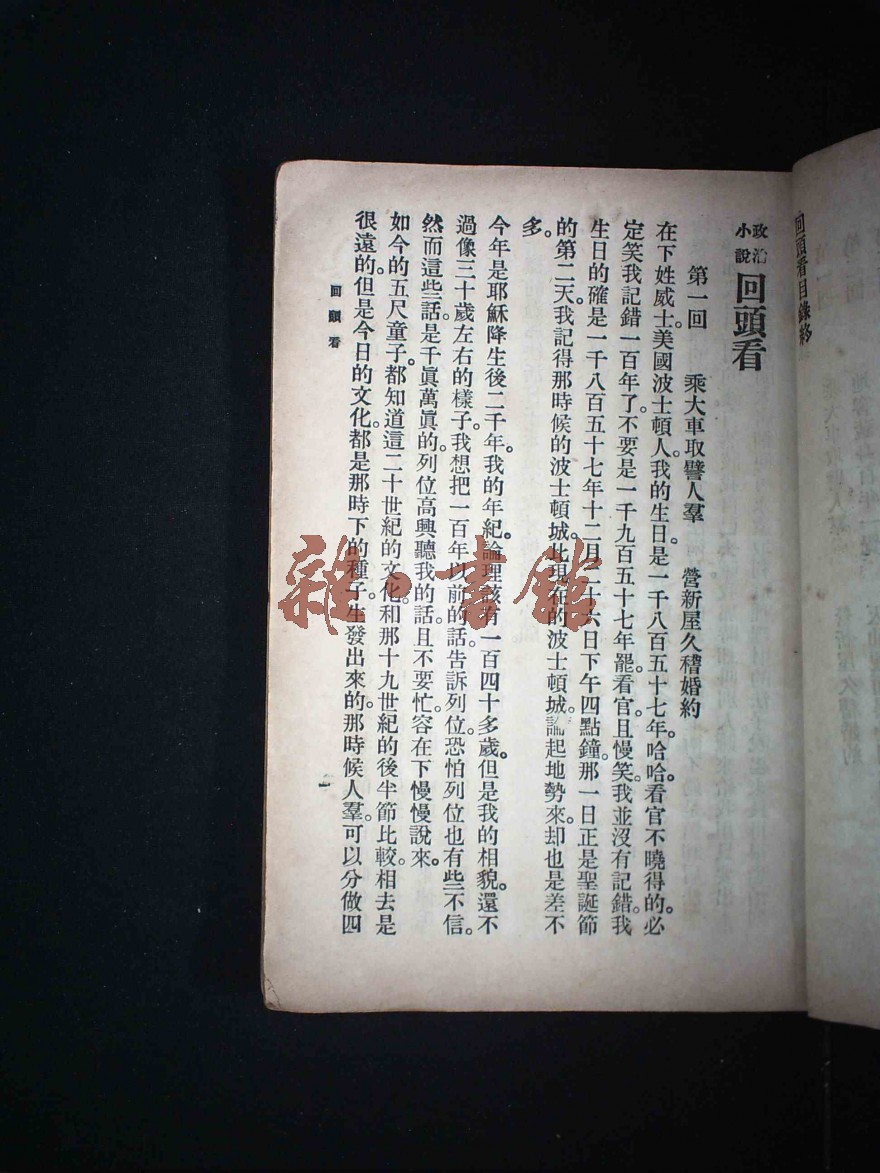 回頭看目錄終
政治小說 回頭看
第一回 乘大車取譬人羣 營新屋久稽婚約
在下姓威士。美國波士頓人。我的生日。是一千八百五十七年。哈哈。看官不曉得的。必
定笑我記錯一百年了。不要是一千九百五十七年罷。看官且慢笑。我並沒有記錯。我
生日的確是一千八百五十七年十二月二十六日下午四點鐘。那一日正是聖誕節
的第二天。我記得那時候的波士頓城。比現在的波士頓城。論起地勢來。却也是差不
多。
今年是耶穌降生後二千年。我的年紀。論理該有一百四十多歲。但是我的相貌。還不
過像三十歲左右的樣子。我想把一百年以前的話。告訴列位。恐怕列位也有些不信。
然而這些話。是千眞萬眞的。列位高興聽我的話。且不要忙。容在下慢慢說來。
如今的五尺童子。都知道這二十世紀的文化。和那十九世紀的後半節比較。相去是
很遠的。但是今日的文化。都是那時下的種子。生發出來的。那時候人羣。可以分做四
回頭看
一
雜·書館